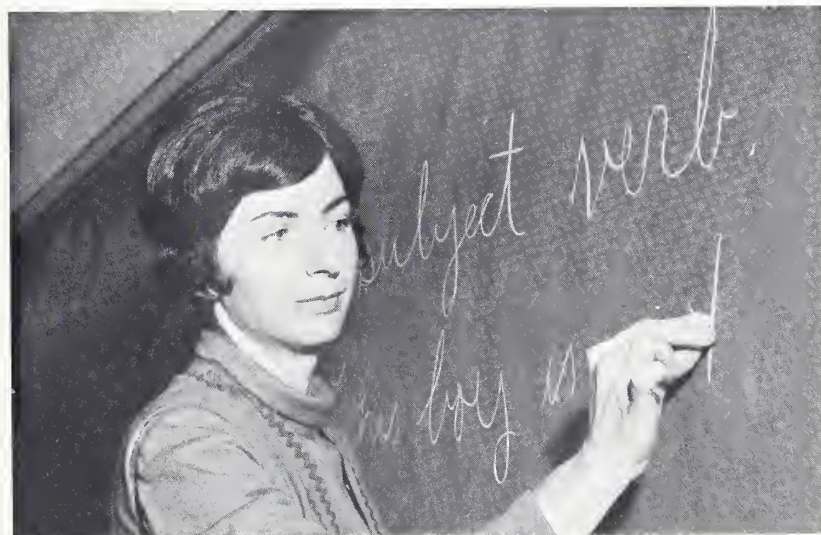 subject verb.
boy is